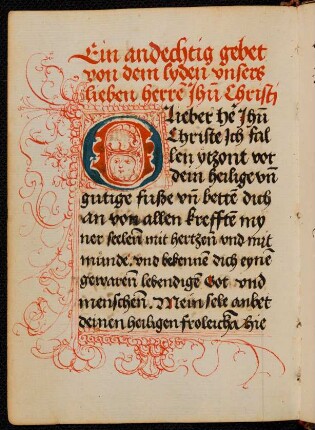 Ein andechtig gebet
von dem lyden vnsers
lieben herre Jhū Christi
O lieber he' Jhū
Christe Ich fal
len ytzont vor
dem heilige vn̄
gutige fuße vn̄ bette͞ dich
an von allen krefften my
ner seelen mit hertzen vnd mit
munde. vnd bekenne dich eyne͞
gewaren lebendige͞ Got vnd
menschen. Mein sele anbet
deinen heiligen froleiche͞ hie